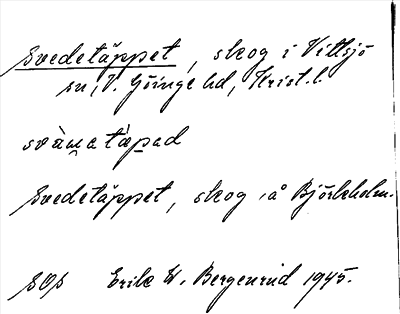 Svedetäppet, skog i Vittsjö
sn, V. Göinge hd, Krist. l.
Svedetäppet, skog å Björkholm.
SOp Erik W. Bergenrud 1945.